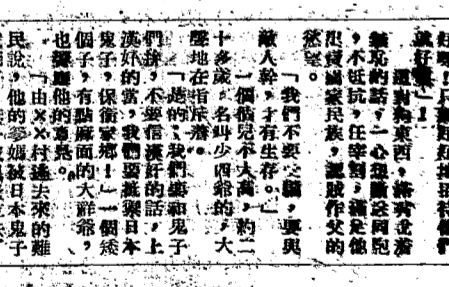 好嗎！只要好好地招待他們
就好囉！」
這對狗東西，搭啃說着
無恥的話，一心想斷送同胞
，不抵抗，任宰割，滿足他
出賣國家民族，認賊作父的
慾望。
「我們不要　，要與
敵人幹，才有生存。」
一個個兒不大高，約二
十多歲，名叫少四爺的，大
聲地在指斥着。
「是的，我們要和鬼子
們拼，不要信漢奸的話，上
漢奸的當，我們要抵禦日本
鬼子，保衛家鄉！」一個矮
個子，有點麻面的大群爺，
也響應他的意見。
「由××村逃去來的難
民說，他的爹媽被日本鬼子